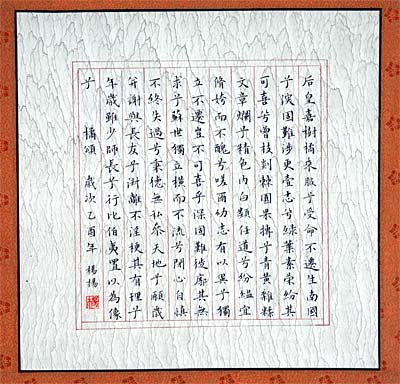 后皇嘉樹橘來服兮受命不遷生南國
兮深固難徙更壹志兮綠葉素榮紛其
可喜兮曾枝剡棘圓果摶兮青黃雜糅
文章爛兮精色內白類任道兮紛縕宜
脩姱而不醜兮嗟爾幼志有以異兮獨
立不遷豈不可喜兮深固難徙廓其無
求兮蘇世獨立橫而不流兮閉心自慎
不終失過兮秉德無私參天地兮願歲
并謝與長友兮淑離不淫梗其有理兮
年歲雖少師長兮行比伯夷置以為像
兮 橘頌 歲次乙酉年 楊揚